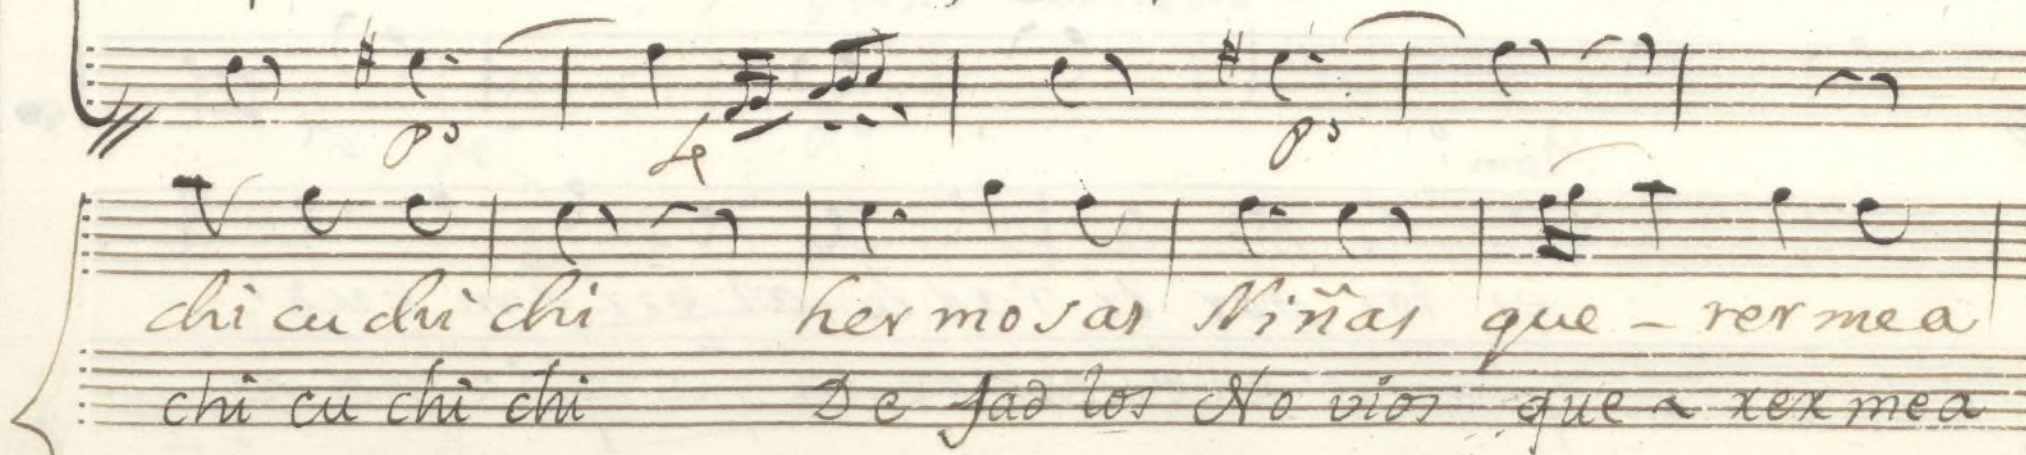 po fe po
chi cu chi chi hermosas Niñas que - rer mea
chi cu chi chi De jad los No vios que - rer mea